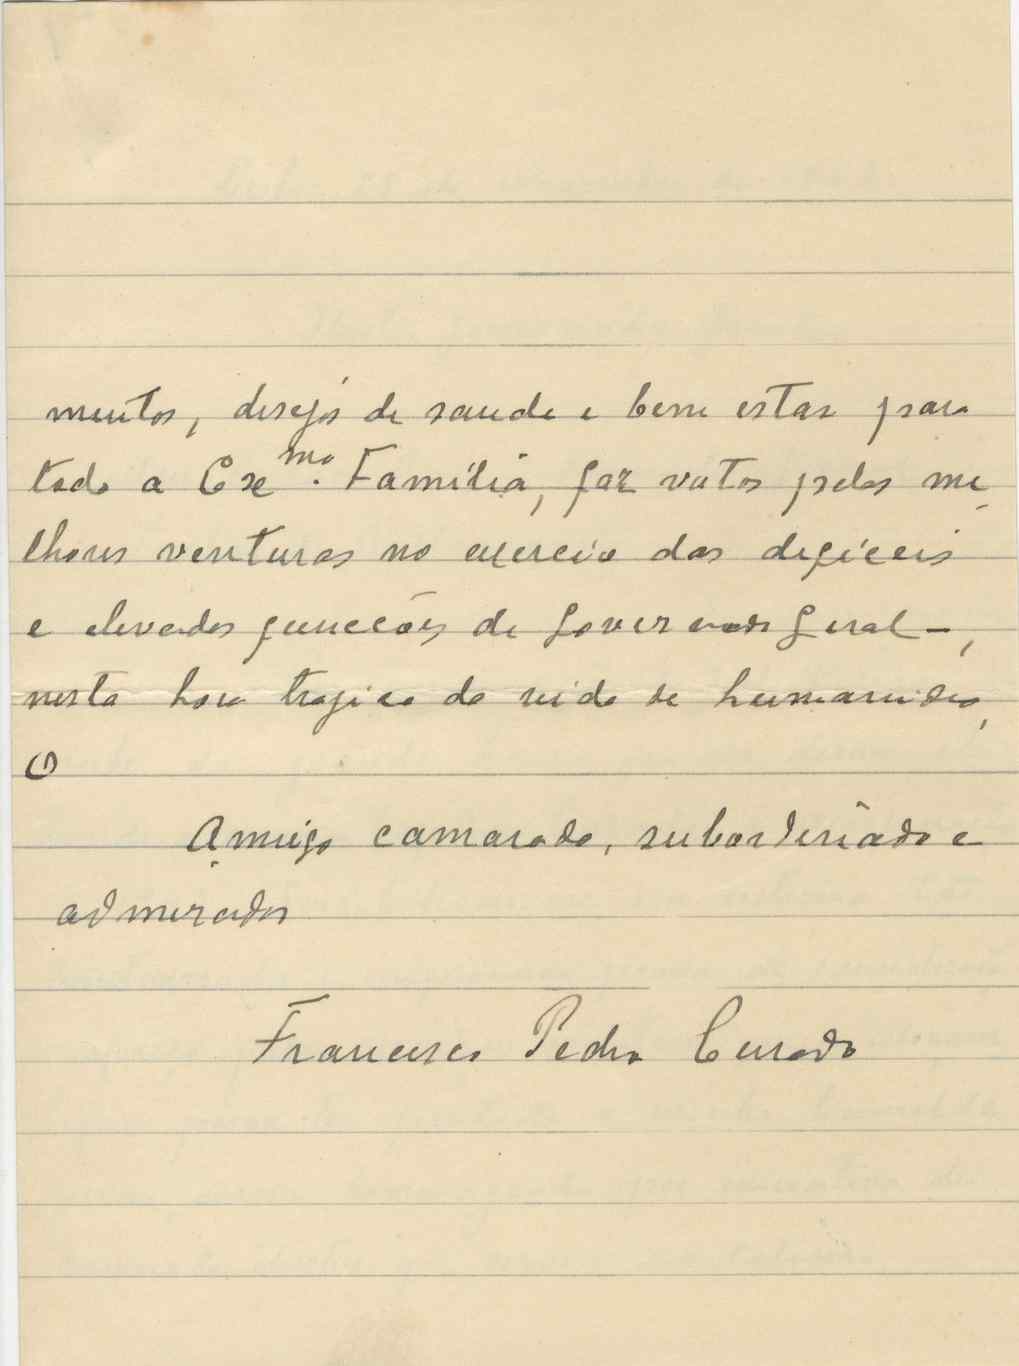 mentos, desejos de saude e bem estar para
toda a Exmª. Família, faz votos pelas me-
lhores venturas no exercio das difíceis
e elevadas funcções de Governador Geral -,
nesta hora tragica da vida da humanidade,
O
Amigo camarada, subordinado e
admirador
Francisco Pedro Curado